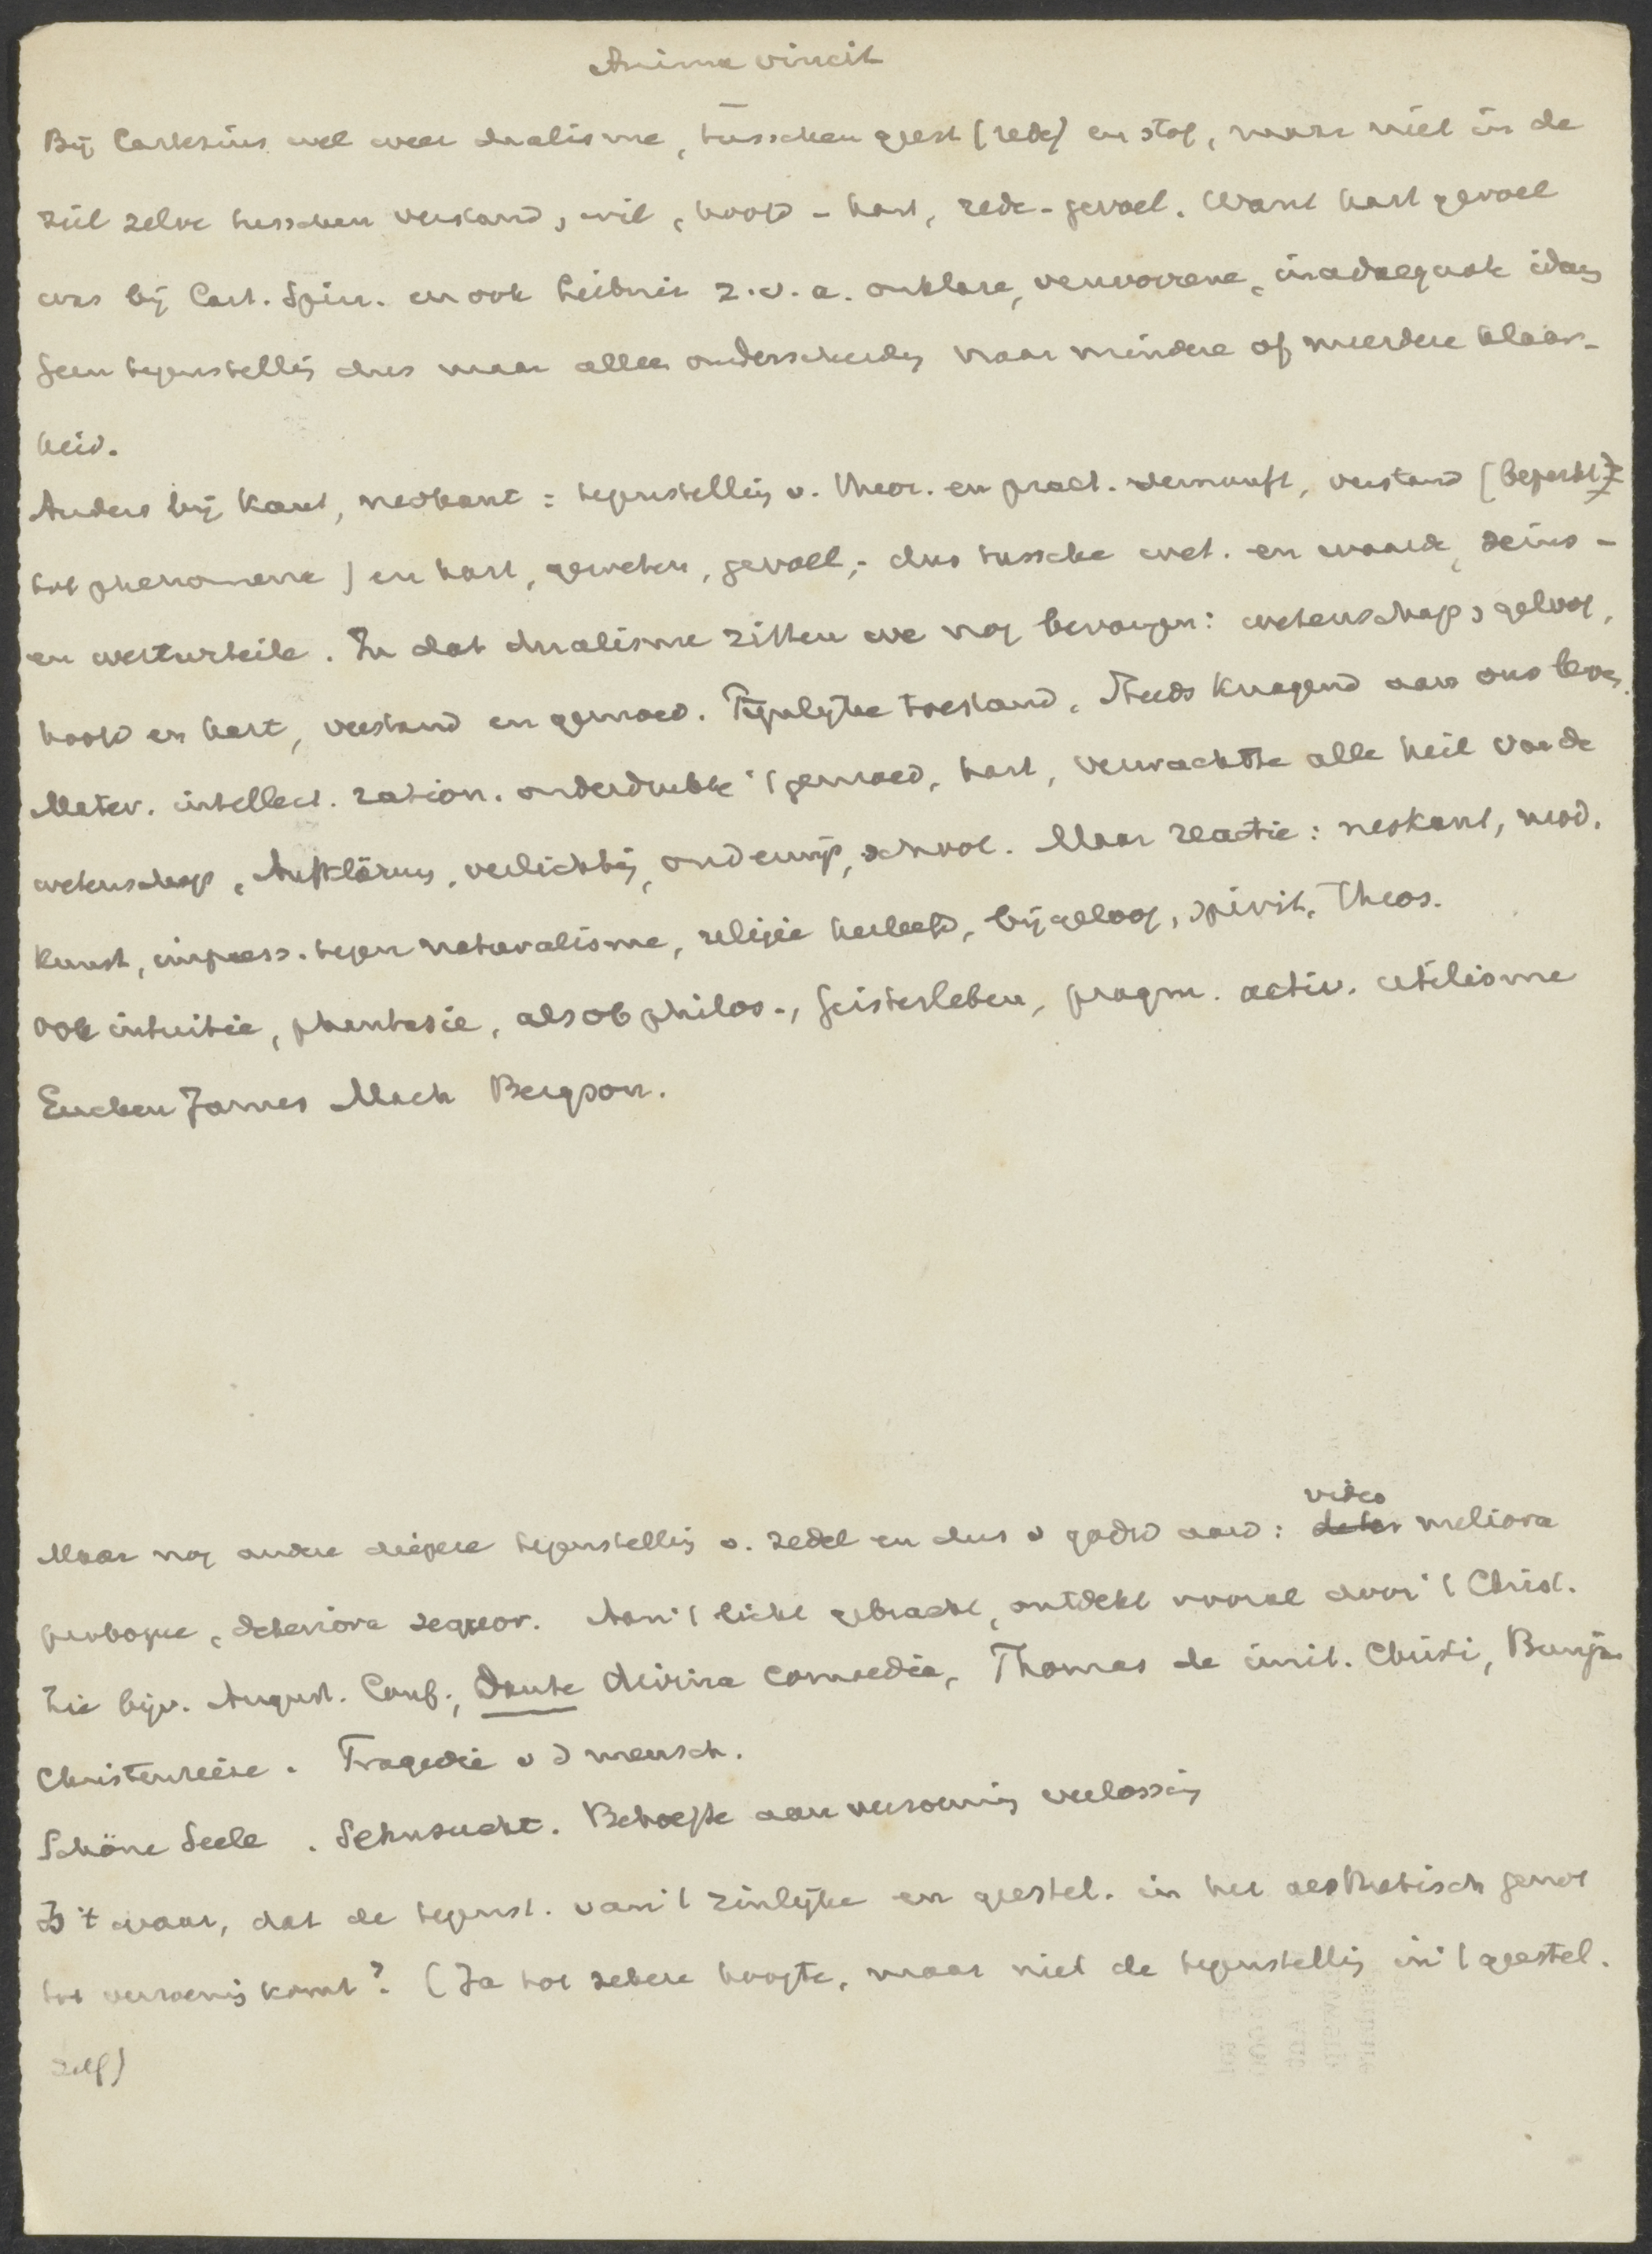 Anima vincit
Bij Cartesius wel weer dualisme, tusschen geest (rede) en stof, maar niet in de
ziel zelve tusschen verstand, wil, hoofd - hart, rede - gevoel. Want hart gevoel
was bij Cart. Spin. en ook Leibniz z.v.a. onklare, verworrene, inadaequate ideeën
Geen tegenstelling dus maar alleen onderscheiding naar mindere of meerdere klaar-
heid.
Anders bij Kant, neokant: tegenstelling v. theor. en pract. vernunft, verstand (beperkt
tot phenomena) en hart, geweten, gevoel; dus tussche wet. en waarde, seins -
en werturteile. In dat dualisme zitten we nog bevangen: wetenschap, geloof,
hoofd en hart, verstand en gemoed. Pijnlijke toestand. Steeds knagend aan ons leven.
Mater. intellect. ration. onderdrukte 't gemoed, hart, verwachtte alle heil van de
wetenschap, Aufklärung, verlichting, onderwijs, school. Maar reactie: neokant, mod.
kunst, impress. tegen naturalisme, religie herleefd, bijgeloof, spirit. Theos.
ook intuitie, phantasie, als ob philos., Geisterleben, pragm. activ. utilisme
Eucken James Mach Bergson.
Maar nog andere diepere tegenstelling v. zedel en dus v godsd aard: video meliora
proboque, deteriora sequor. Aan 't licht gebracht, ontdekt vooral door 't Christ.
Zie bijv. August. Conf., Dante divina comoedia, Thomas de imit. Christi, Bunjan
Christenreise. Tragedie v d mensch.
Schöne Seele. Sehnsucht. Behoefte aan verzoening verlossing
Is 't waar, dat de tegenst. van 't zinlijke en geestel. in het aesthetisch genot
tot verzoening komt? (Ja tot zekere hoogte, maar niet de tegenstelling in 't geestel.
zelf)